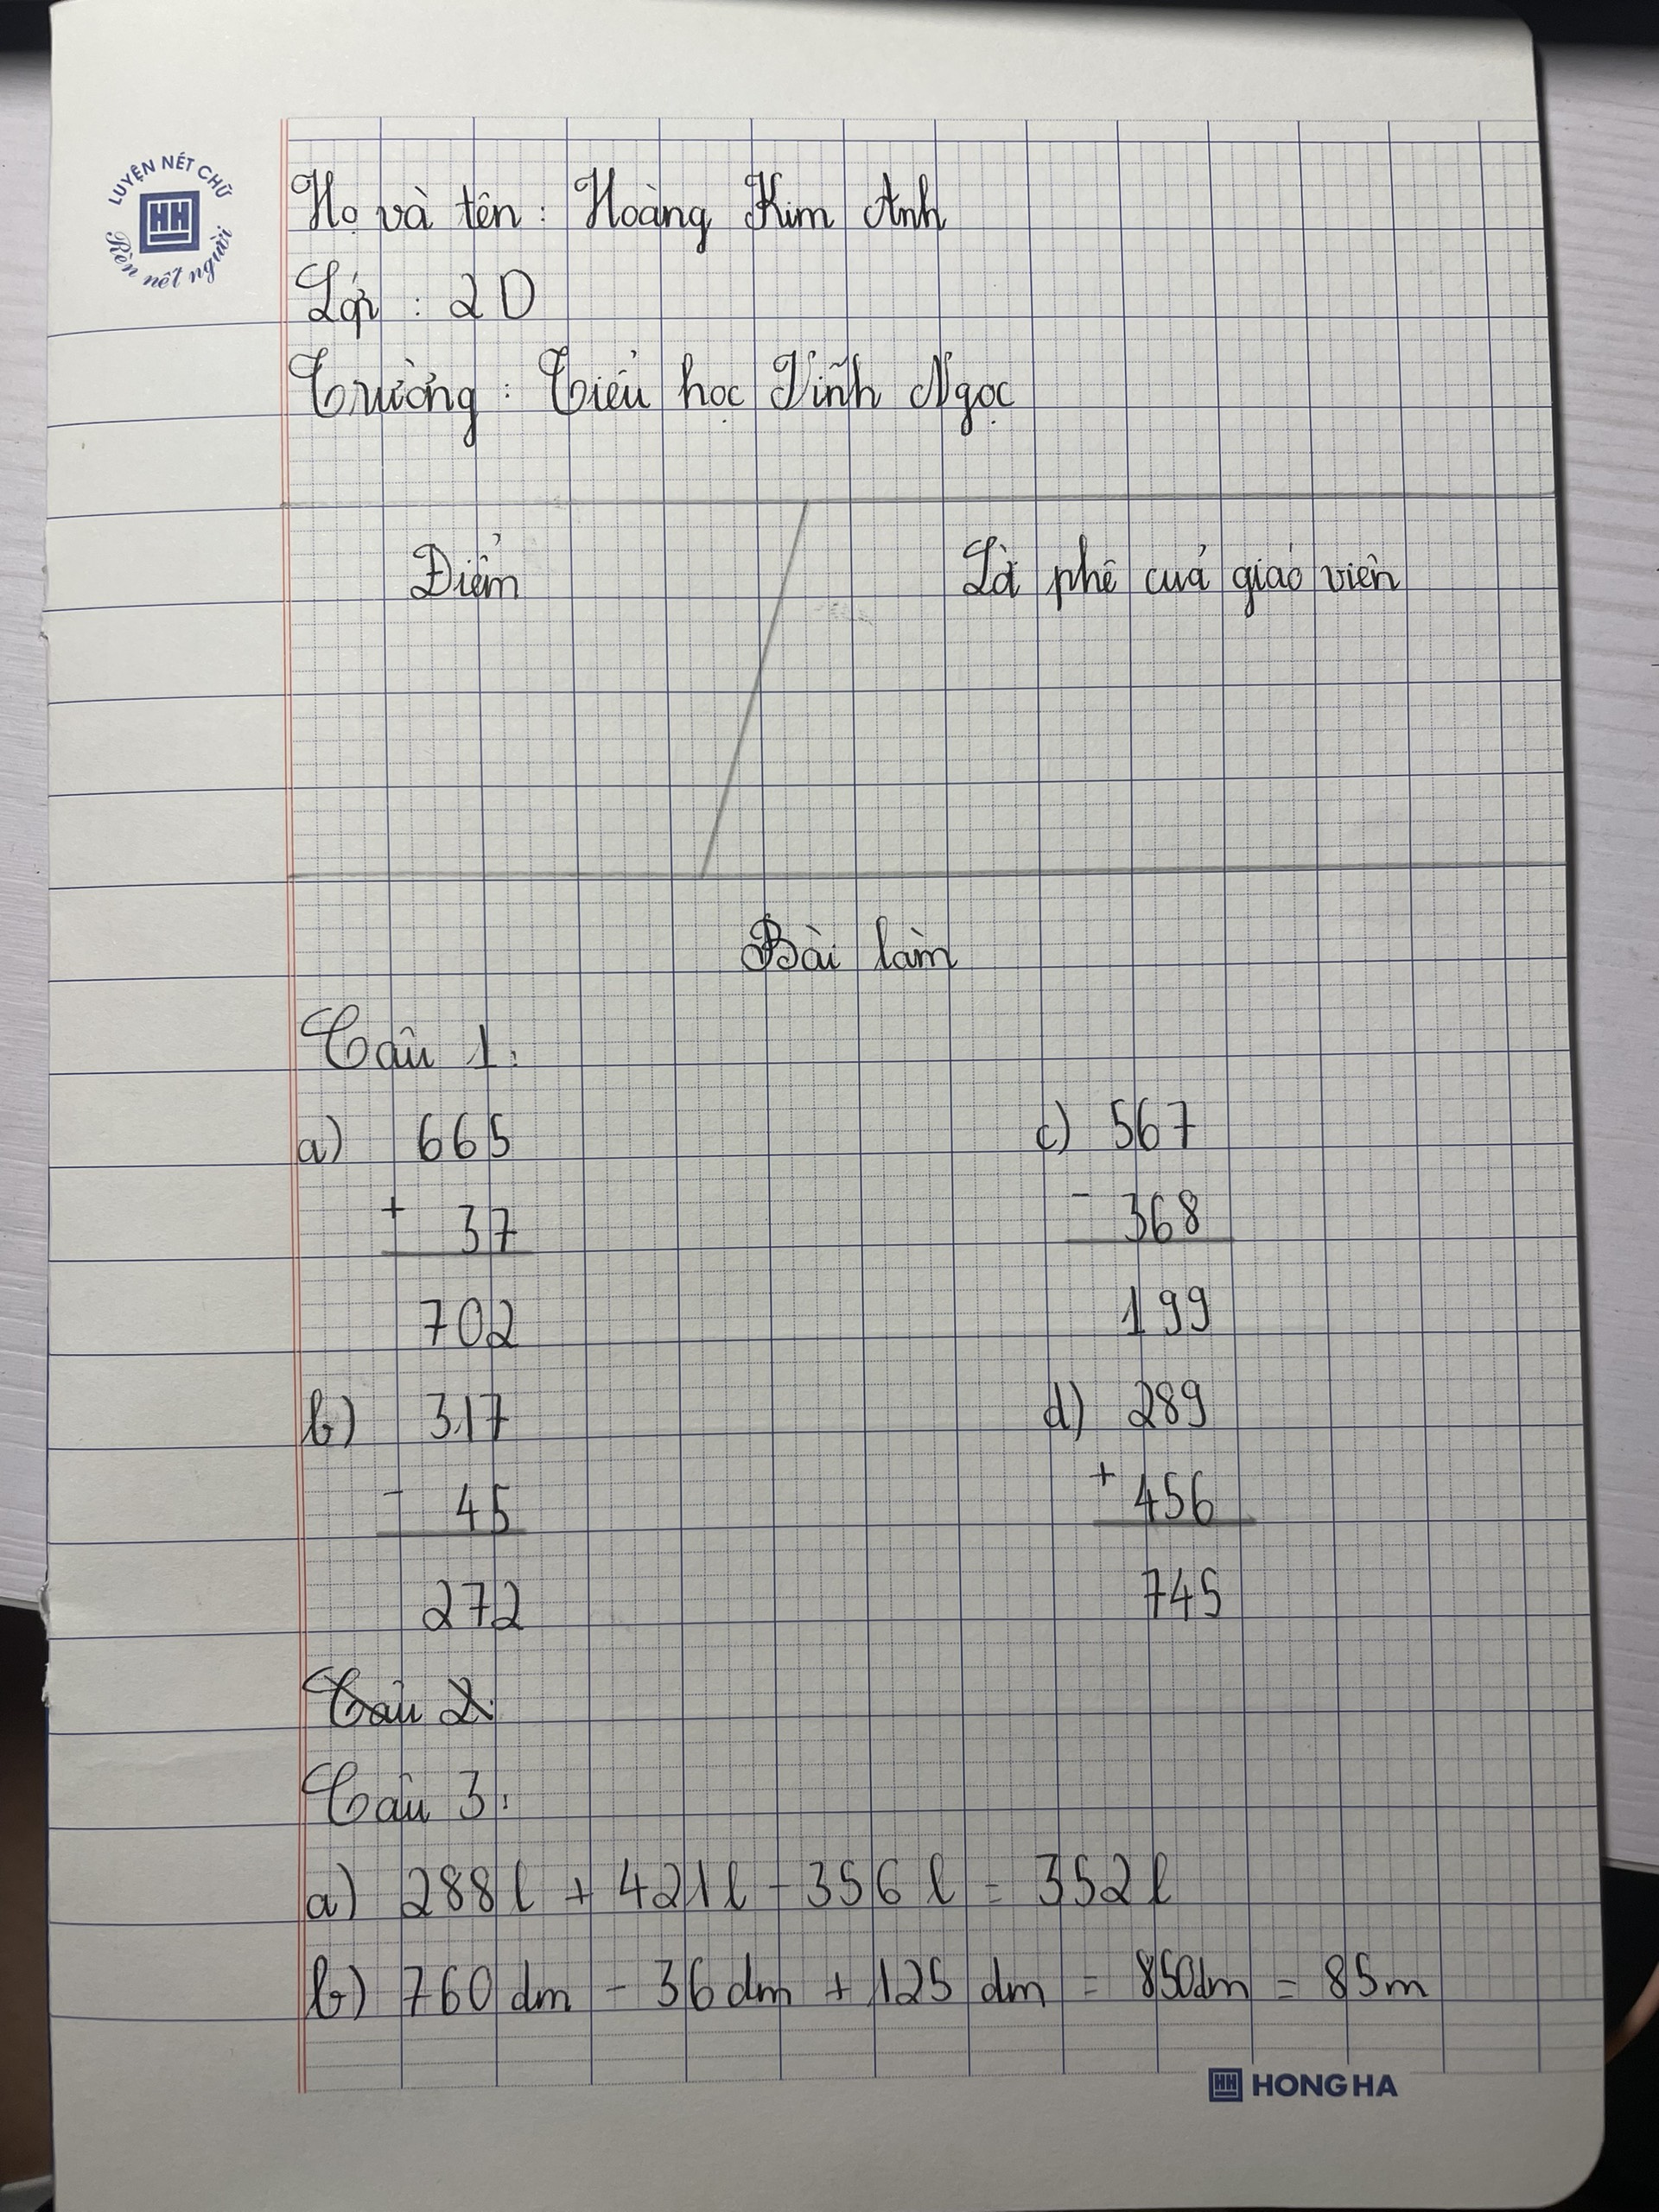 LUYỆN NÉT CHỮ
HH
Rèn nết người
Họ và tên : Hoàng Kim Anh
Lớp : 2D
Trường : Tiểu học Vĩnh Ngọc
Điểm
Lời phê của giáo viên
Bài làm
Câu 1:
a) 665
+ 37
702
b) 317
- 45
272
c) 567
- 368
199
d) 289
+ 456
745
Câu 2:
Câu 3:
a) 288l + 421l - 356l = 352l
b) 760dm - 36dm + 125dm = 850dm = 85m
HH HONG HA